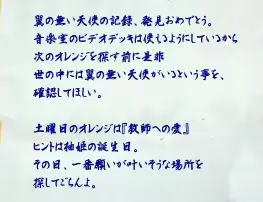 翼の無い天使の記録、発見おめでとう。
音楽室のビデオデッキは使えるようにしているから
次のオレンジを探す前に是非
世の中には翼の無い天使がいるという事を、
確認してほしい。
土曜日のオレンジは『教師への愛』
ヒントは柚姫の誕生日。
その日、一番願いが叶いそうな場所を
探してごらんよ。